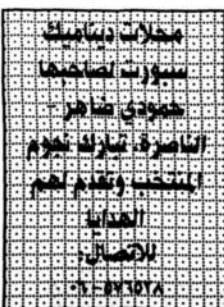 محلات ديناميك
سبورت لصاحبها
حمودي ضاهر -
الناصرة، تبارك نجوم
المنتخب وتقدم لهم
الهدايا
للاتصال:
٠٦-٥٧٦٥٢٨